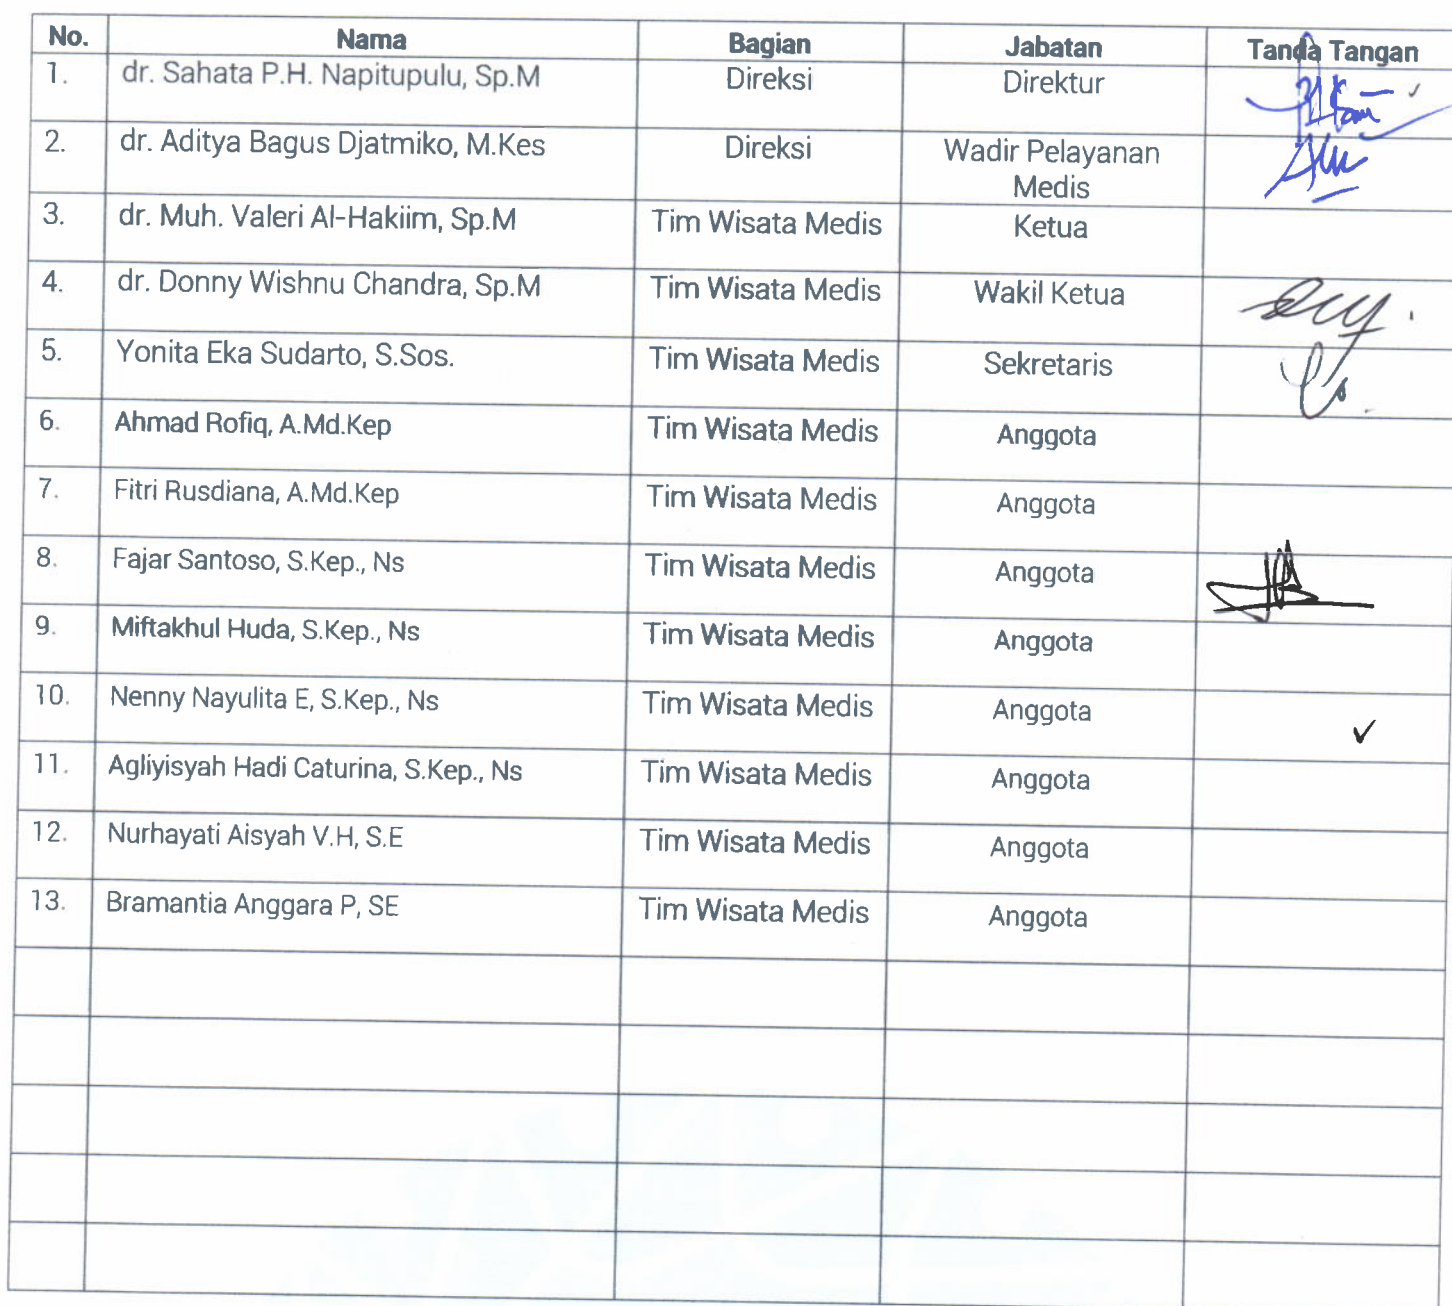 No. Nama Bagian Jabatan Tanda Tangan
1. dr. Sahata P.H. Napitupulu, Sp.M Direksi Direktur
2. dr. Aditya Bagus Djatmiko, M.Kes Direksi Wadir Pelayanan
Medis
3. dr. Muh. Valeri Al-Hakiim, Sp.M Tim Wisata Medis Ketua
4. dr. Donny Wishnu Chandra, Sp.M Tim Wisata Medis Wakil Ketua
5. Yonita Eka Sudarto, S.Sos. Tim Wisata Medis Sekretaris
6. Ahmad Rofiq, A.Md.Kep Tim Wisata Medis Anggota
7. Fitri Rusdiana, A.Md.Kep Tim Wisata Medis Anggota
8. Fajar Santoso, S.Kep., Ns Tim Wisata Medis Anggota
9. Miftakhul Huda, S.Kep., Ns Tim Wisata Medis Anggota
10. Nenny Nayulita E, S.Kep., Ns Tim Wisata Medis Anggota
11. Agliyisyah Hadi Caturina, S.Kep., Ns Tim Wisata Medis Anggota
12. Nurhayati Aisyah V.H, S.E Tim Wisata Medis Anggota
13. Bramantia Anggara P, SE Tim Wisata Medis Anggota